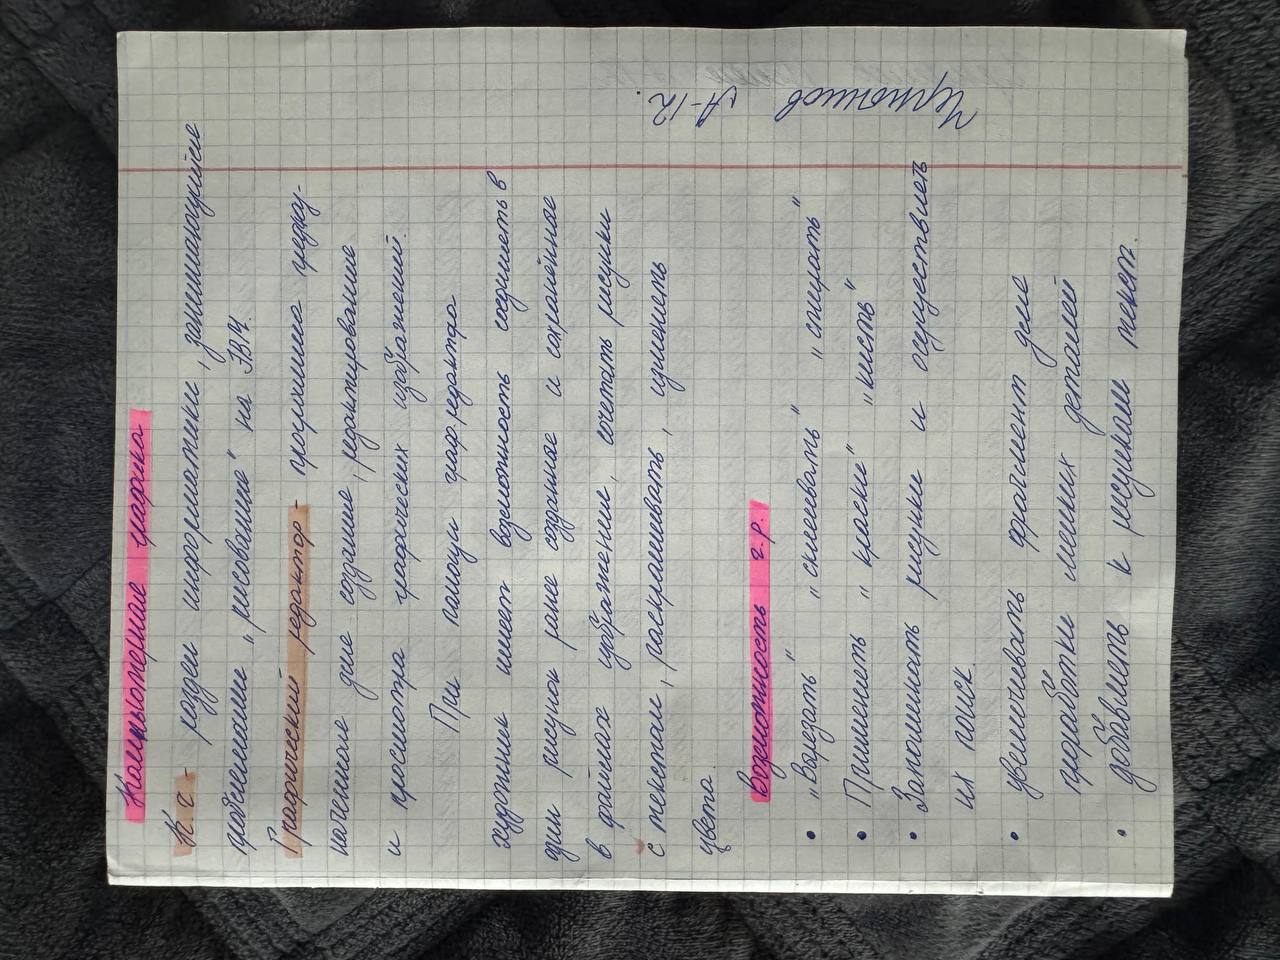 Компьютерная графика
К.г - раздел информатики, занимающийся
проблемами „рисования" на ЭВМ.
Графический редактор - программа предназ-
наченная для создания, редактирования
и просмотра графических изображений.
При помощи граф.редактора
художник имеет возможность соединять в
один рисунок ранее созданное и сохранённое
в файлах изображение, сочетать рисунки
с текстом, раскрашивать, изменять
цвета.
Возможность г.р.
• „Вырезать" „склеивать" „стирать"
• Применять „краски" „кисть"
• Запоминать рисунки и осуществлять
их поиск
• увеличивать фрагмент для
проработки мелких деталей
• добавлять к рисункам текст.
А-12.